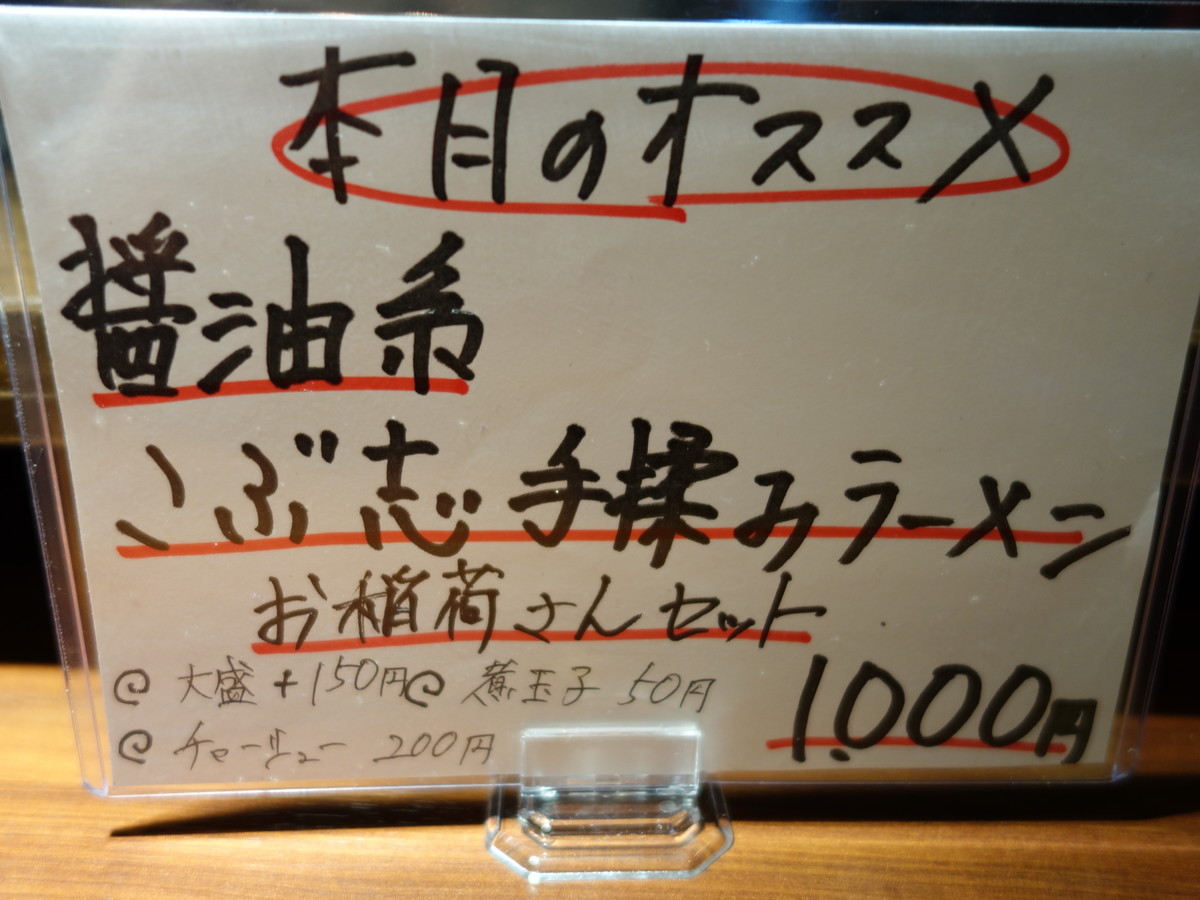 本日のオススメ
醤油系
こぶ志 手揉みラーメン
お稲荷さんセット
大盛+150円 煮玉子 50円
チャーシュー 200円
1,000円